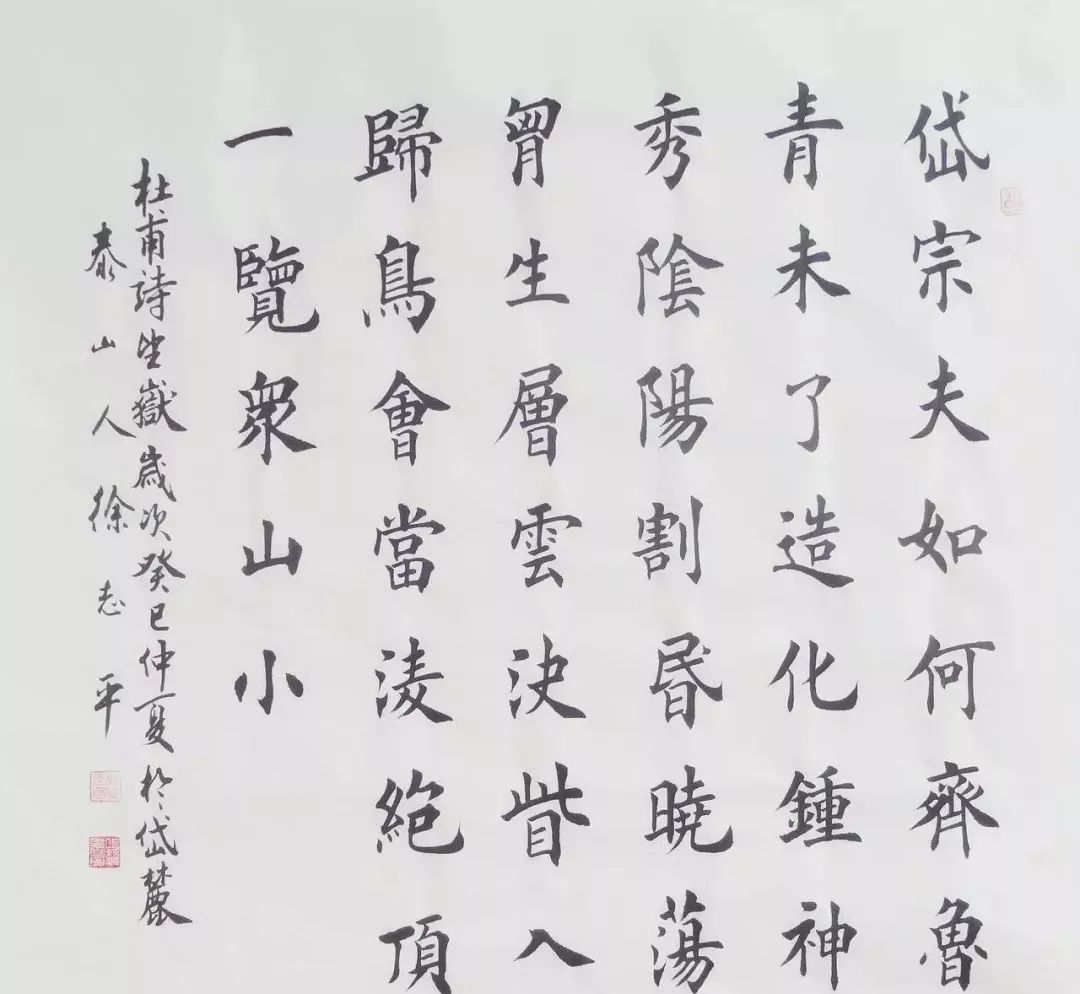 岱宗夫如何齊魯
青未了造化鍾神
秀陰陽割昬曉蕩
胷生層雲決眥入
歸鳥會當淩絶頂
一覽衆山小
杜甫詩望嶽歲次癸巳仲夏於岱麓
泰山人徐志平